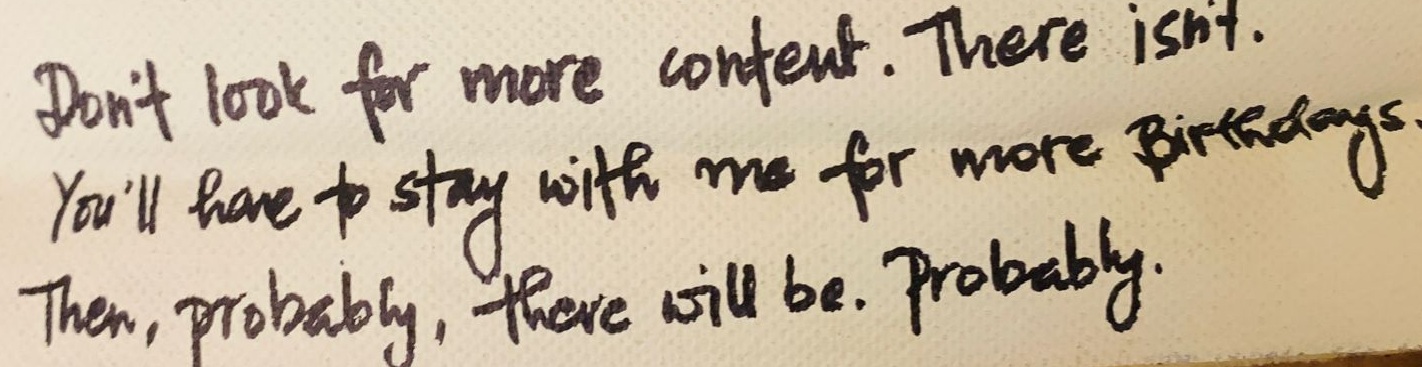 Don't look for more content. There isn't.
You'll have to stay with me for more Birthdays.
Then, probably, there will be. Probably.